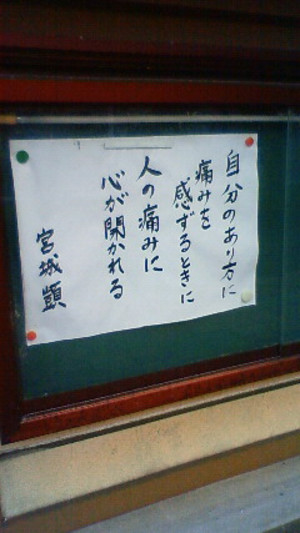 自分のあり方に
痛みを
感ずるときに
人の痛みに
心が開かれる
宮城顗